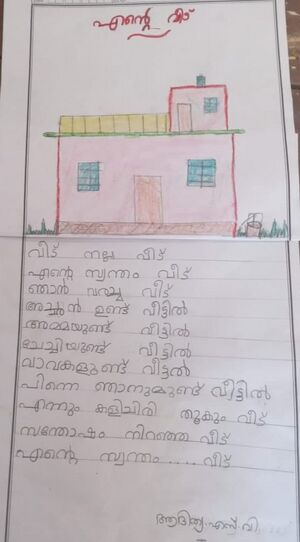 എന്റെ വീട്
വീട് നല്ല വീട്
എന്റെ സ്വന്തം വീട്
ഞാൻ വരച്ച വീട്
അച്ഛൻ ഉണ്ട് വീട്ടിൽ
അമ്മയുണ്ട് വീട്ടിൽ
ചേച്ചിയുണ്ട് വീട്ടിൽ
വാവകളുണ്ട് വീട്ടൽ
പിന്നെ ഞാനുമുണ്ട് വീട്ടിൽ
എന്നും കളിചിരി തൂകും വീട്
സന്തോഷം നിറഞ്ഞ വീട്
എന്റെ സ്വന്തം ..... വീട്
ആദിത്യ.എസ്.വി.